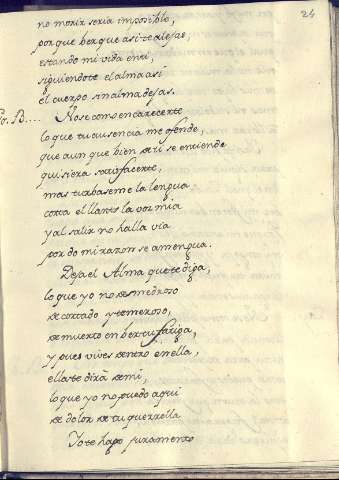 24
no morir seria imposible,
porque ber que asi te alejas,
estando mi vida en ti,
siguiendote el alma asi
el cuerpo sin alma dejas.
B.... No se como encarecerte
lo que tu ausencia me ofende,
que aun que bien se ti se entiende
quisiera satisfacerte,
mas turbaseme la lengua
corta el llanto la voz mia
y al salir no halla via
por do mi razon se amengua.
Deja el Alma que te diga,
lo que yo no de medroso
de cortado y temeroso,
de muerto en ber tu fatiga,
y pues vives dentro en ella,
ella te dirã de mi,
lo que yo no puedo aqui
de dolor de tu querella
Yo te hago juramento